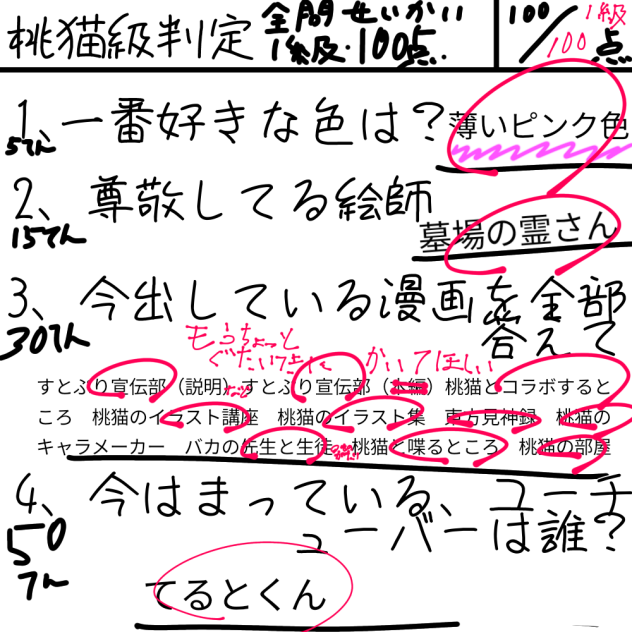 桃猫級判定
全問せいかい
1級・100点.
100/100点
1級
1、一番好きな色は？
5てん
薄いピンク色
2、尊敬してる絵師
15てん
墓場の霊さん
3、今出している漫画を全部
答えて
30てん
もうちょっと
ぐたいてきに かいてほしい
すとぷり宣伝部（説明）など すとぷり宣伝部（本編）桃猫とコラボすると
ころ 桃猫のイラスト講座 桃猫のイラスト集 東方見神録 桃猫の
キャラメーカー バカの先生と生徒 桃猫と喋るところ 桃猫の部屋
4、今はまっている、ユーチ
ューバーは誰？
50
てん
てるとくん